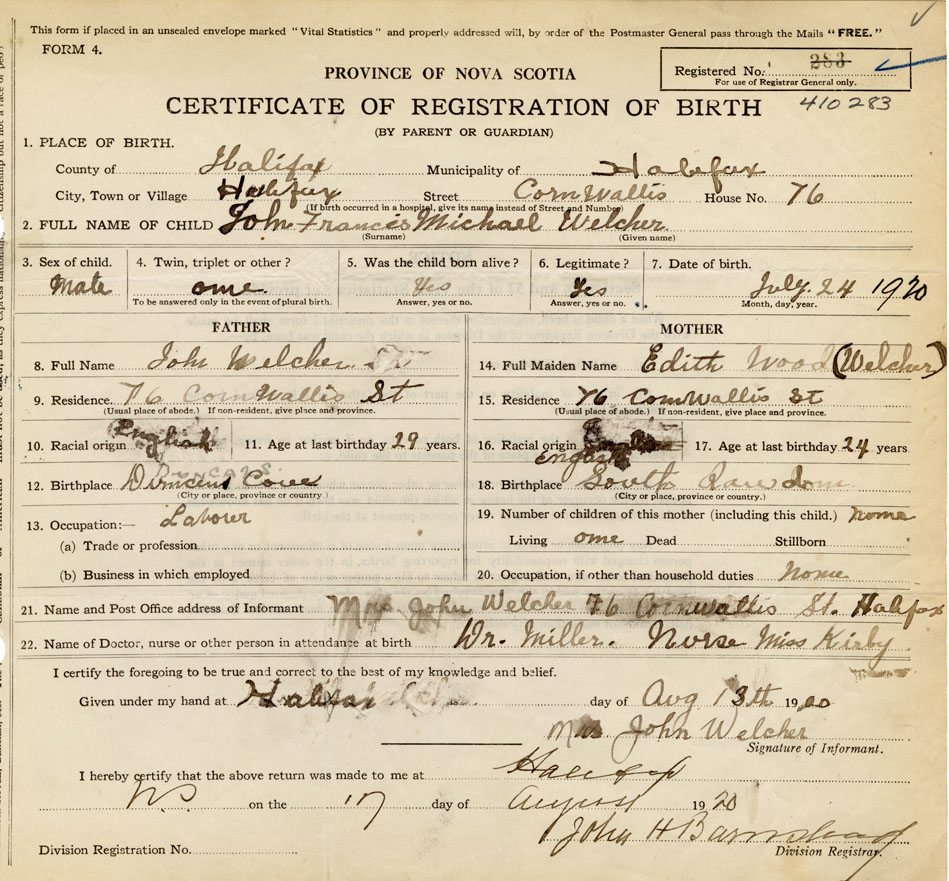 This form if placed in an unsealed envelope marked "Vital Statistics" and properly addressed will, by order of the Postmaster General pass through the Mails "FREE."
FORM 4.
Registered No. 283
For use of Registrar General only.
PROVINCE OF NOVA SCOTIA
CERTIFICATE OF REGISTRATION OF BIRTH 410283
(BY PARENT OR GUARDIAN)
1. PLACE OF BIRTH.
County of Halifax Municipality of Halifax
City, Town or Village Halifax Street CornWallis House No. 76
(If birth occurred in a hospital, give its name instead of Street and Number)
2. FULL NAME OF CHILD John Francis Michael Welcher
(Surname) (Given name)
3. Sex of child. 4. Twin, triplet or other? 5. Was the child born alive? 6. Legitimate? 7. Date of birth.
Male one Yes Yes July 24 1920
To be answered only in the event of plural birth. Answer, yes or no. Answer, yes or no. Month, day, year.
FATHER MOTHER
8. Full Name John Welcher 14. Full Maiden Name Edith Wood (Welcher)
9. Residence. 76 CornWallis St 15. Residence 76 CornWallis St
(Usual place of abode.) If non-resident, give place and province. (Usual place of abode.) If non-resident, give place and province.
10. Racial origin English 11. Age at last birthday 29 years. 16. Racial origin English 17. Age at last birthday 24 years
12. Birthplace Duncans Cove 18. Birthplace South Rawdon
(City or place, province or country) (City or place, province or country.)
13. Occupation:— Laborer 19. Number of children of this mother (including this child.) none
(a) Trade or profession Living one Dead Stillborn
(b) Business in which employed 20. Occupation, if other than household duties none
21. Name and Post Office address of Informant Mrs. John Welcher 76 Cornwallis St. Halifax
22. Name of Doctor, nurse or other person in attendance at birth Dr. Miller. Nurse Miss Kirby
I certify the foregoing to be true and correct to the best of my knowledge and belief.
Given under my hand at Halifax this day of Aug 13th 1920
Mrs John Welcher
Signature of Informant.
I hereby certify that the above return was made to me at Halifax
NS on the 17 day of August 1920
John H Barnstead
Division Registration No. Division Registrar.